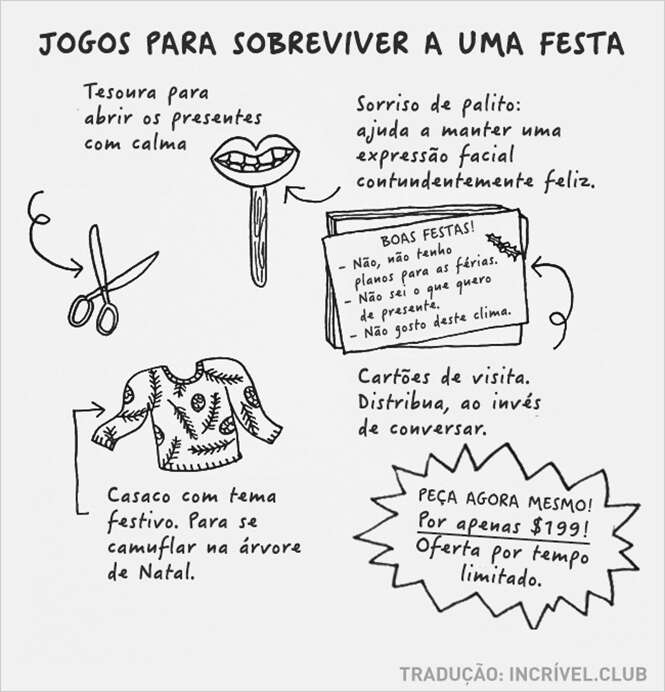 JOGOS PARA SOBREVIVER A UMA FESTA
Tesoura para
abrir os presentes
com calma
Sorriso de palito:
ajuda a manter uma
expressão facial
contundentemente feliz.
BOAS FESTAS!
- Não, não tenho
planos para as férias.
- Não sei o que quero
de presente.
- Não gosto deste clima.
Cartões de visita.
Distribua, ao invés
de conversar.
Casaco com tema
festivo. Para se
camuflar na árvore
de Natal.
PEÇA AGORA MESMO!
Por apenas $199!
Oferta por tempo
limitado.
TRADUÇÃO: INCRÍVEL.CLUB